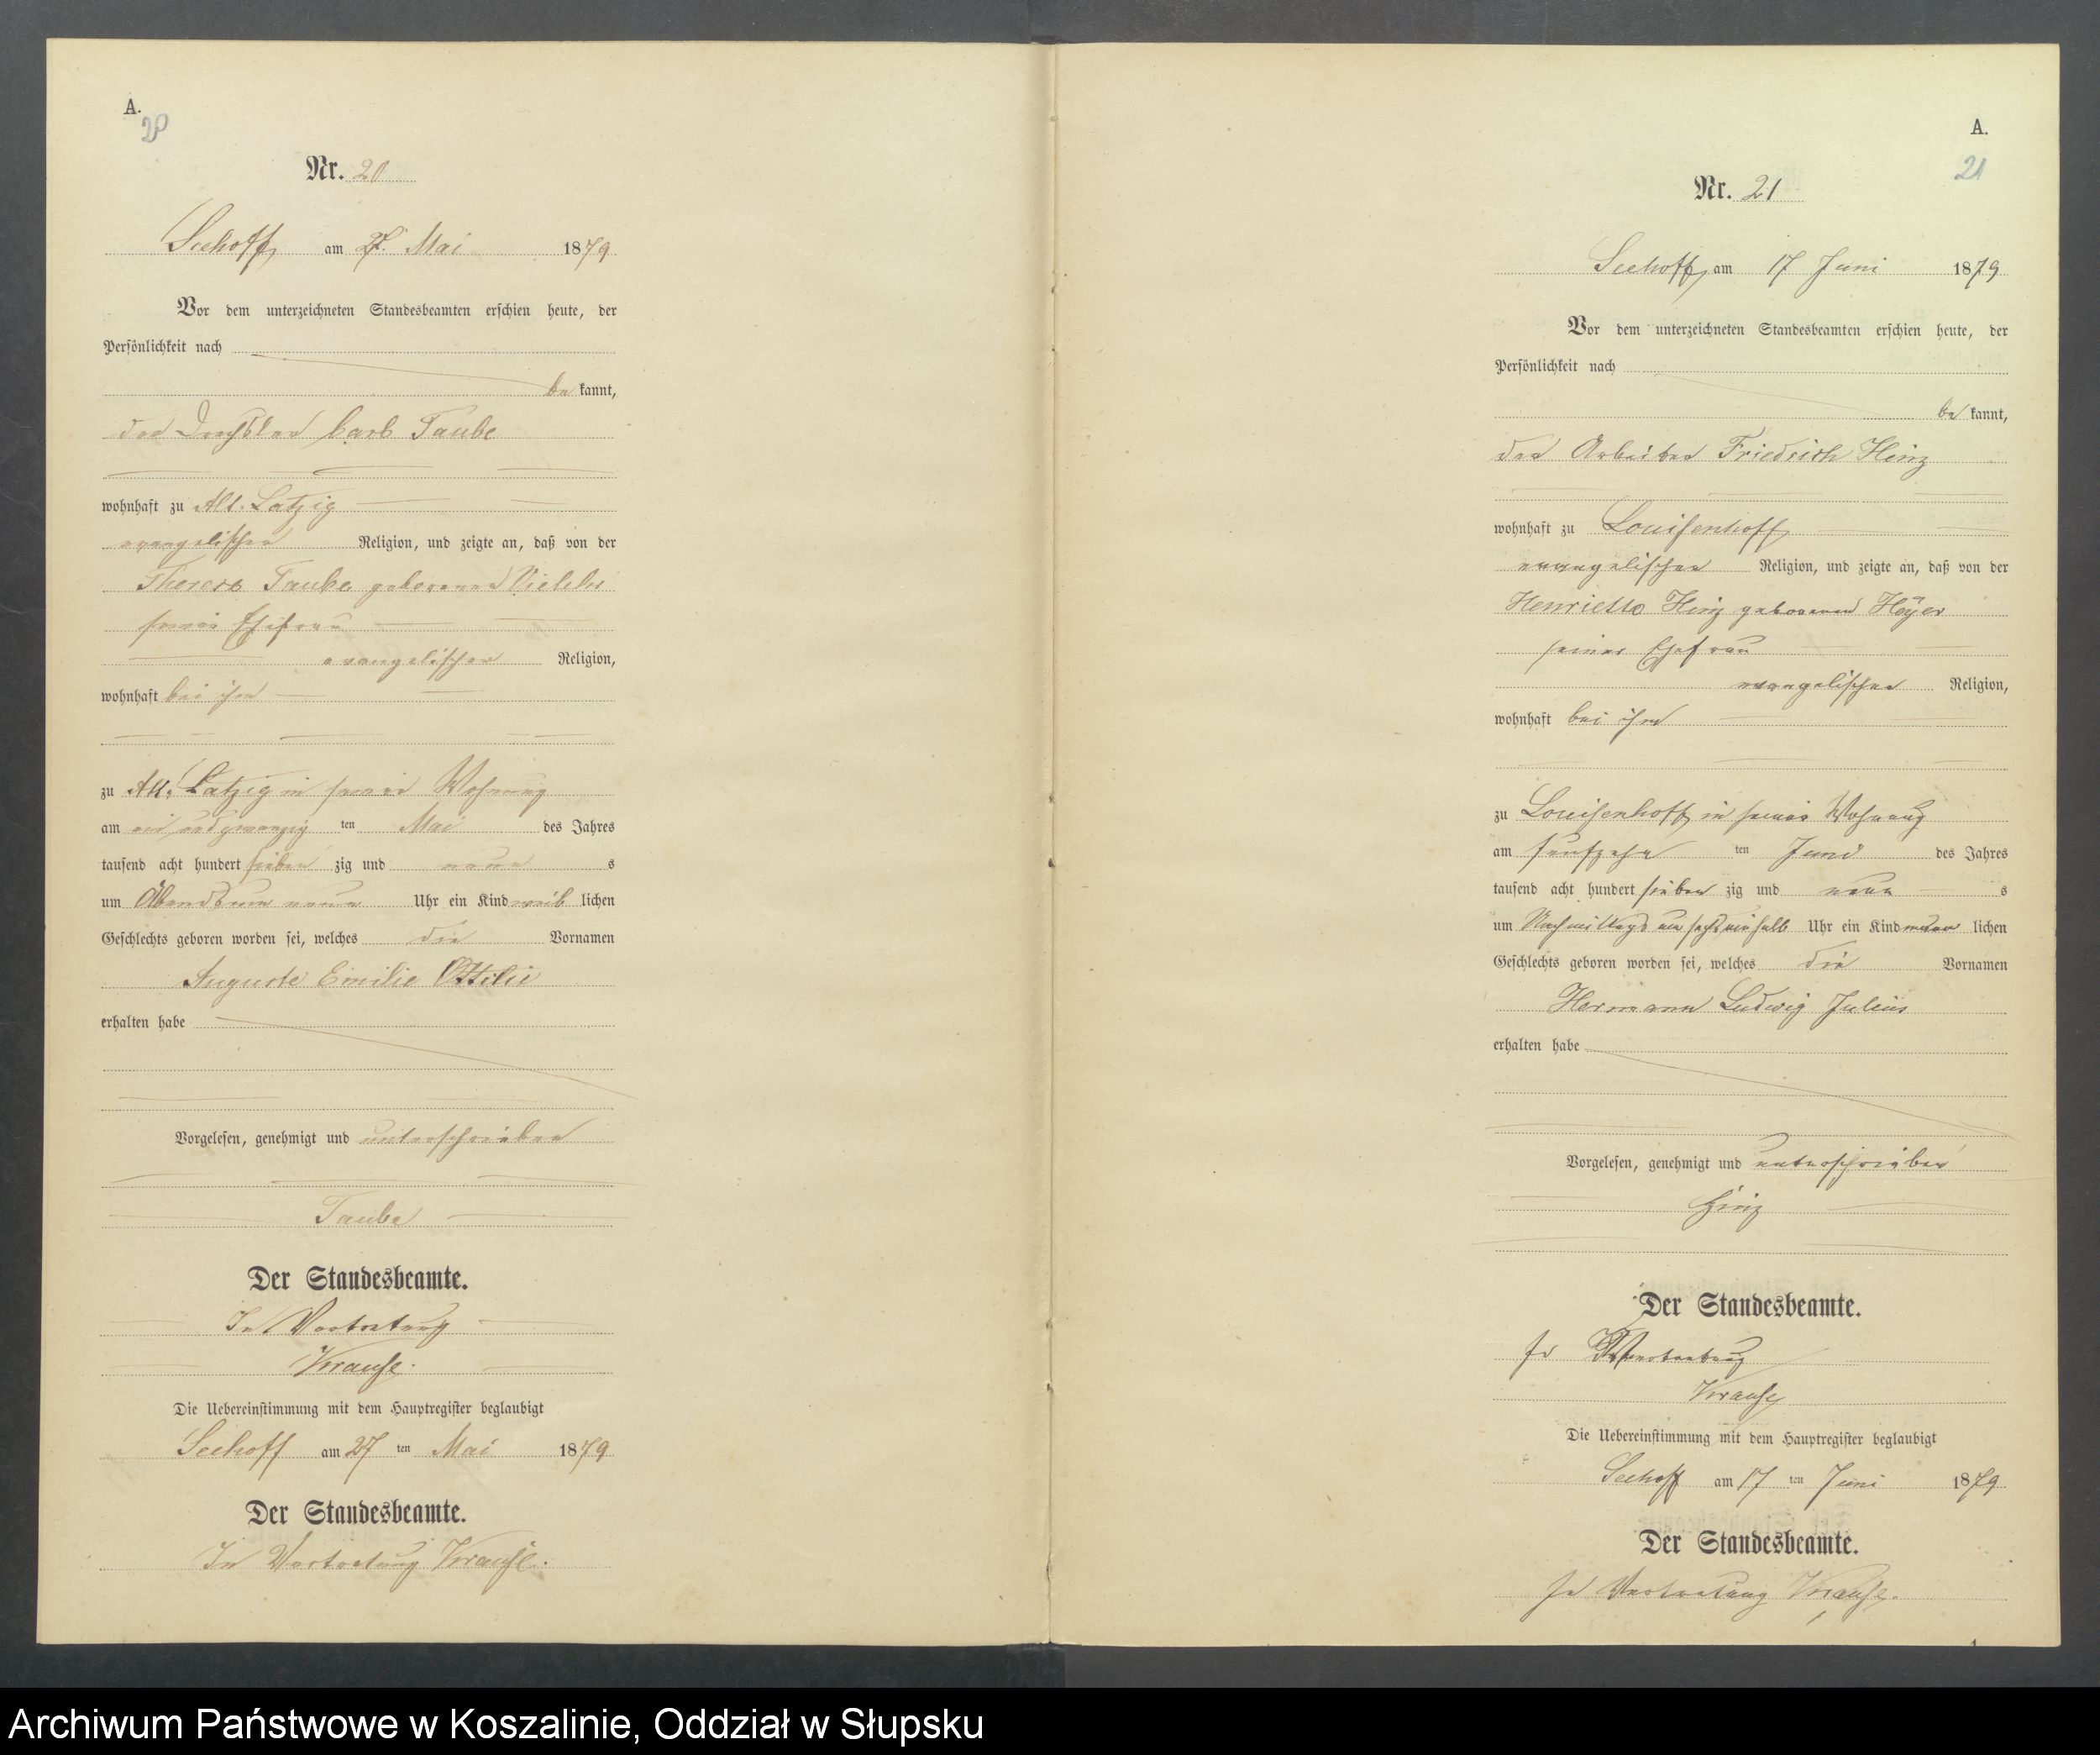 A.
20
Nr. 20
Seehoff, am 27. Mai 1879
Vor dem unterzeichneten Standesbeamten erschien heute, der
Persönlichkeit nach
be kannt,
der Drechsler Carl Taube
wohnhaft zu Alt. Latzig
evangelischer Religion, und zeigte an, daß von der
Therese Taube geborenen
seiner Ehefrau
evangelischer Religion,
wohnhaft bei ihm
zu Alt. Latzig in seiner Wohnung
am ein und zwanzig ten Mai des Jahres
tausend acht hundert sieben zig und neun s
um Abends um neun Uhr ein Kind weib lichen
Geschlechts geboren worden sei, welches die Vornamen
Auguste Emilie Ottilie
erhalten habe
Vorgelesen, genehmigt und unterschrieben
Taube
Der Standesbeamte.
In Vertretung
Krause.
Die Uebereinstimmung mit dem Hauptregister beglaubigt
Seehoff am 27 ten Mai 1879
Der Standesbeamte.
In Vertretung Krause.
A.
21
Nr. 21
Seehoff, am 17 Juni 1879
Vor dem unterzeichneten Standesbeamten erschien heute, der
Persönlichkeit nach
be kannt,
der Arbeiter Friedrich Hinz
wohnhaft zu Louisenhoff
evangelischer Religion, und zeigte an, daß von der
Henriette Hinz geborenen Heyer
seiner Ehefrau
evangelischer Religion,
wohnhaft bei ihm
zu Louisenhoff in seiner Wohnung
am funfzehn ten Juni des Jahres
tausend acht hundert sieben zig und neun s
um Nachmittags um sechseinhalb Uhr ein Kind männ lichen
Geschlechts geboren worden sei, welches die Vornamen
Hermann Ludwig Julius
erhalten habe
Vorgelesen, genehmigt und unterschrieben
Hinz
Der Standesbeamte.
In Vertretung
Krause
Die Uebereinstimmung mit dem Hauptregister beglaubigt
Seehoff am 17 ten Juni 1879
Der Standesbeamte.
In Vertretung Krause.
Archiwum Państwowe w Koszalinie, Oddział w Słupsku